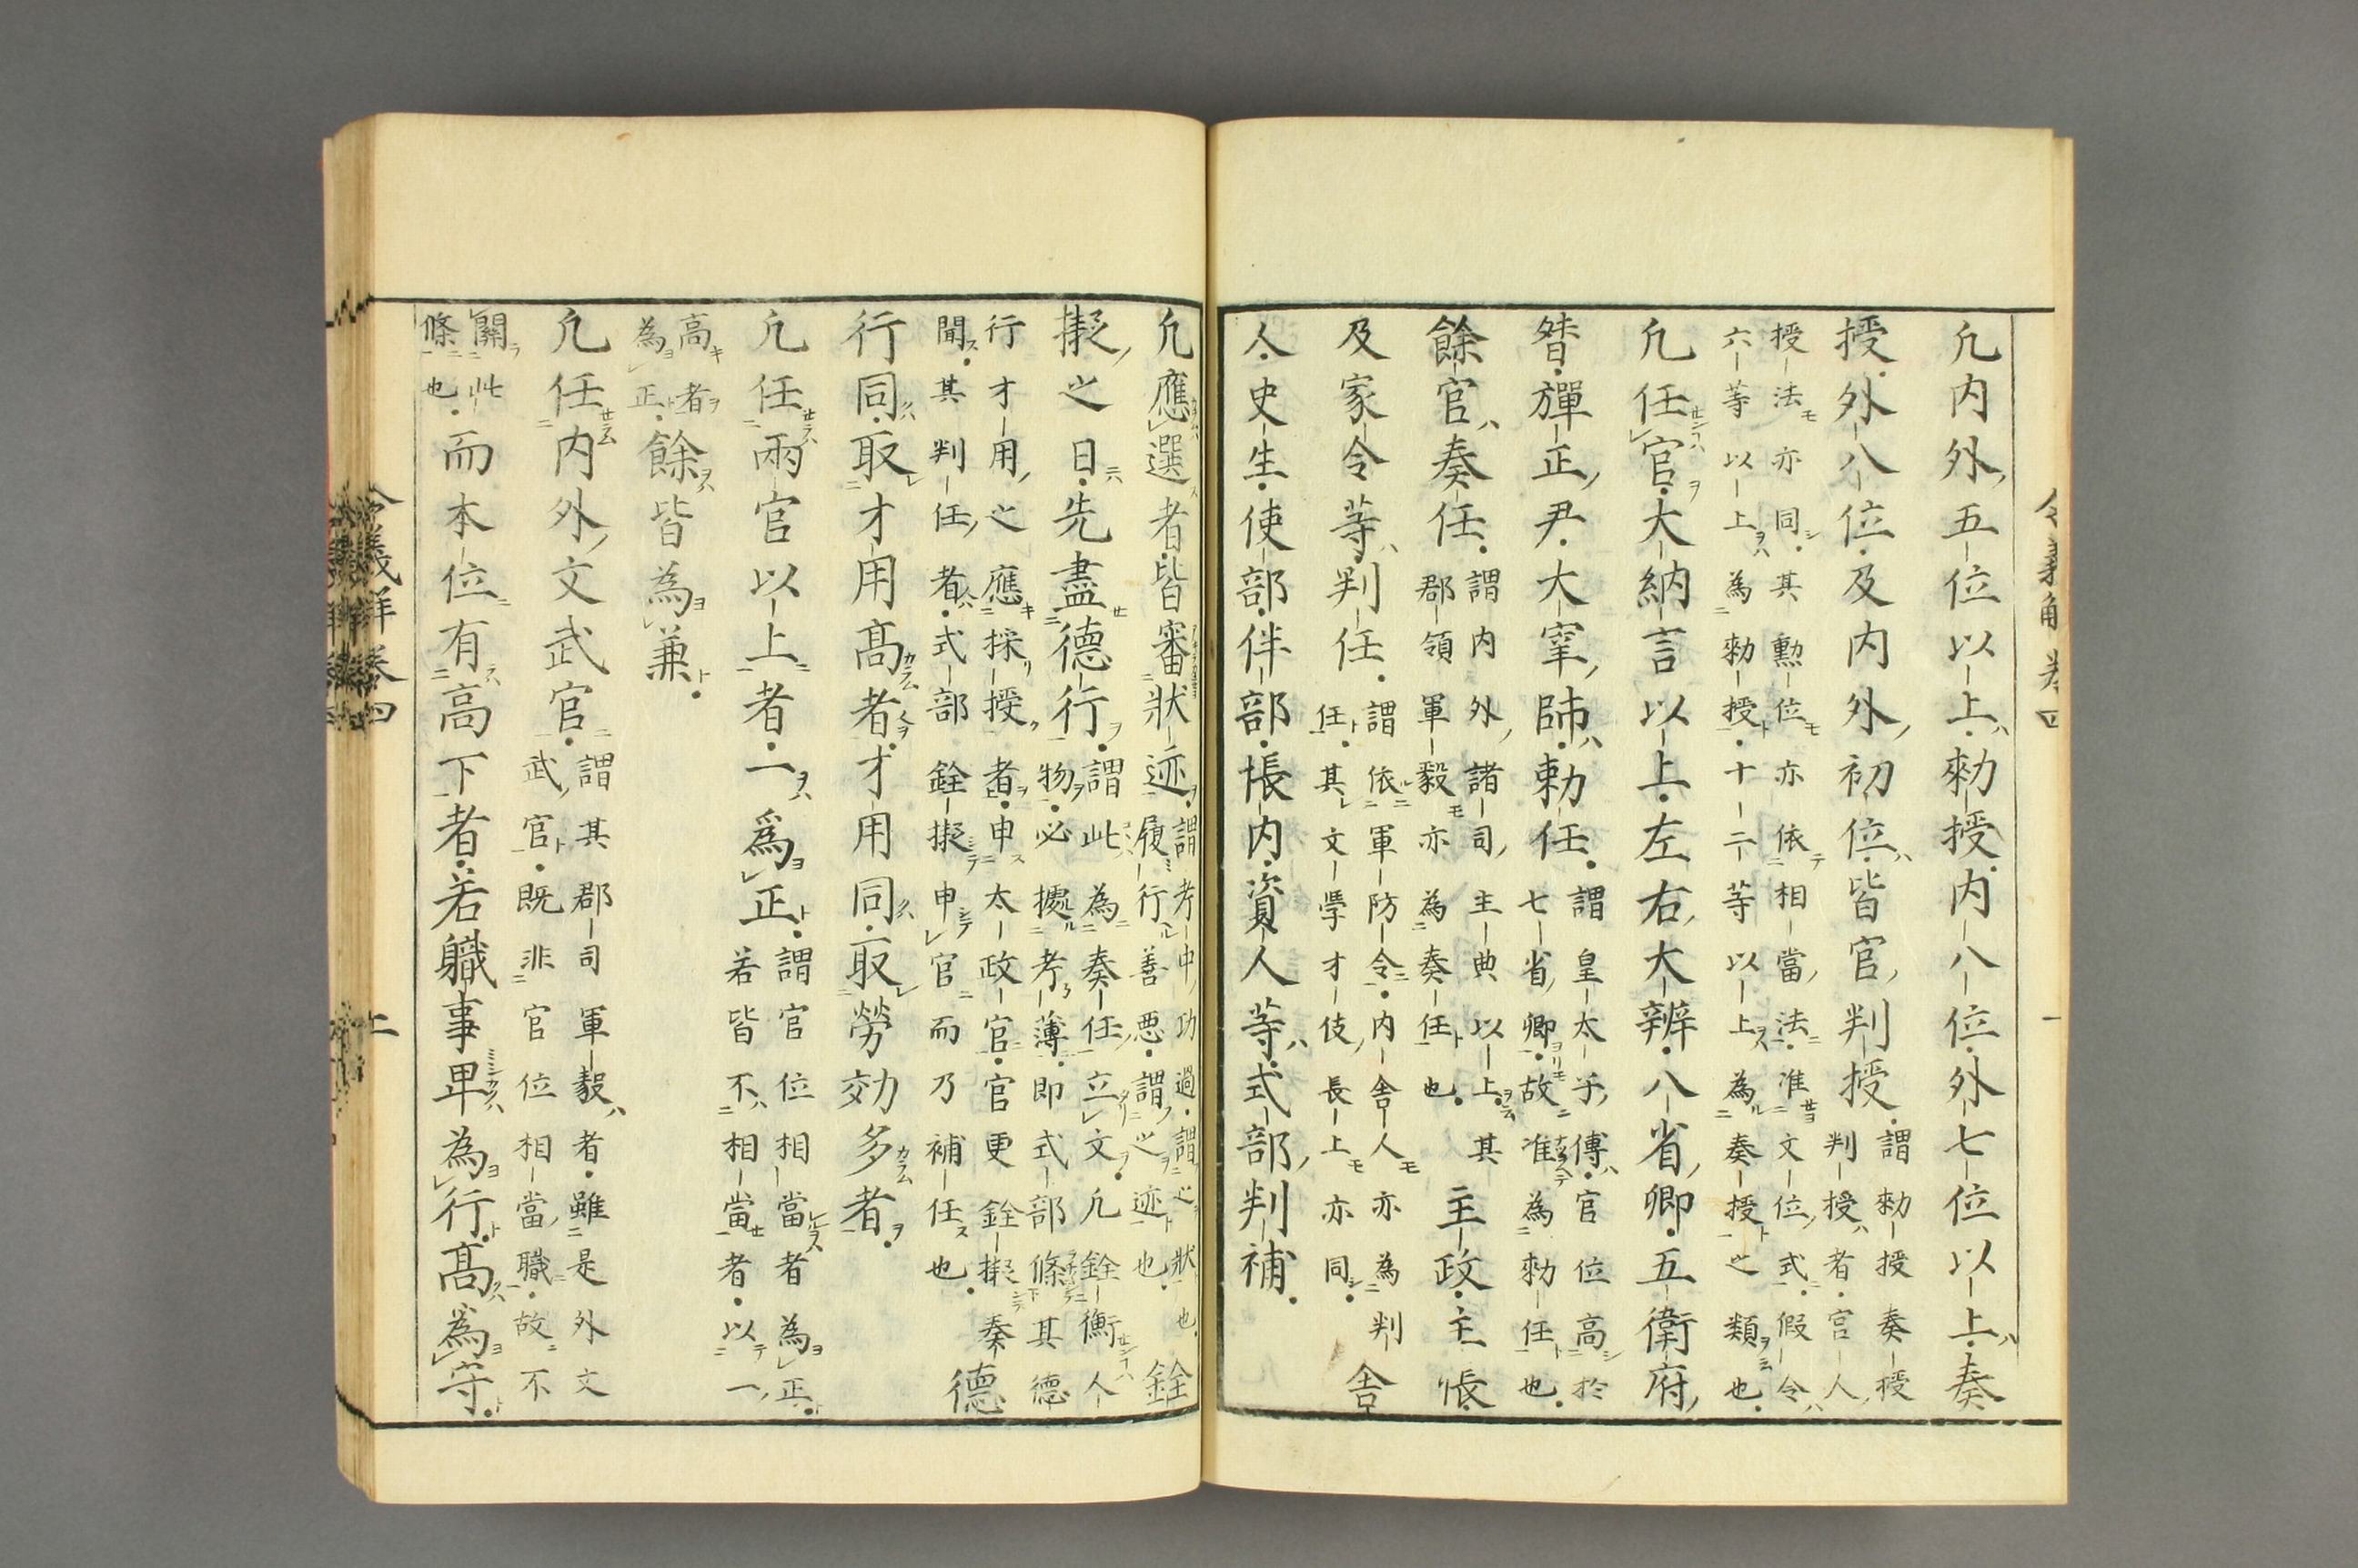 令義解卷四
一
凢内外五位以上勑授内八位外七位以上奏
授外八位及内外初位皆官判授謂勑授奏授
判授者官人
授法亦同其勲位亦依相當法准文位式假令
六等以上為勑授十二等以上為奏授之類也
凢任官大納言以上左右大辨八省卿五衛府
督彈正尹大宰帥勅任謂皇太子傅官位高於
七省卿故准為勑任也
餘官奏任謂内外諸司主典以上其
郡領軍毅亦為奏任也主政主帳
及家令等判任謂依軍防令内舎人亦為判
任其文學才伎長上亦同舎
人史生使部伴部帳内資人等式部判補
凢應選者皆審狀迹謂考中功過謂之狀也
履行善悪謂之迹也銓
擬之日先盡德行謂此為奏任立文凢銓衡人
物必據考薄即式部條其德
行才用之應採授者申太政官官更銓擬奏
聞其判任者式部銓擬申官而乃補任也德
行同取才用髙者才用同取勞効多者
凢任兩官以上者一爲正謂官位相當者為正
若皆不相當者以一
高者
為正餘皆為兼
凢任内外文武官謂其郡司軍毅者雖是外文
武官既非官位相當職故不
關此
條也而本位有高下者若職事卑為行髙爲守
令義解卷四
上